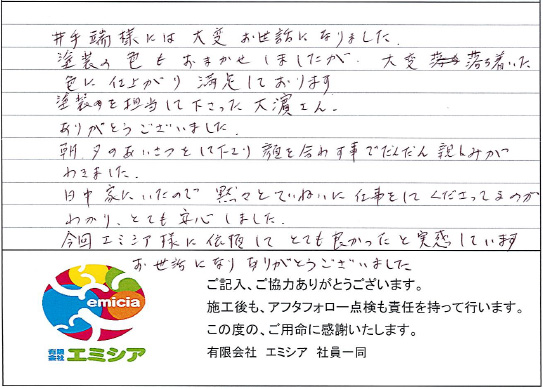 井手端様には大変お世話になりました。
塗装の色もおまかせしましたが、大変 落ち着いた
色に仕上がり 満足しております
塗装を担当して下さった大濵さん。
ありがとうございました。
朝、夕のあいさつをしてたり顔を合わす事でだんだん親しみが
わきました。
日中家にいたので 黙々とていねいに仕事をしてくださってるのが
わかり、とても安心しました。
今回エミシア様に依頼して とても良かったと実感しています
お世話になりありがとうございました
emicia
有限会社 エミシア
ご記入、ご協力ありがとうございます。
施工後も、アフタフォロー点検も責任を持って行います。
この度の、ご用命に感謝いたします。
有限会社 エミシア 社員一同